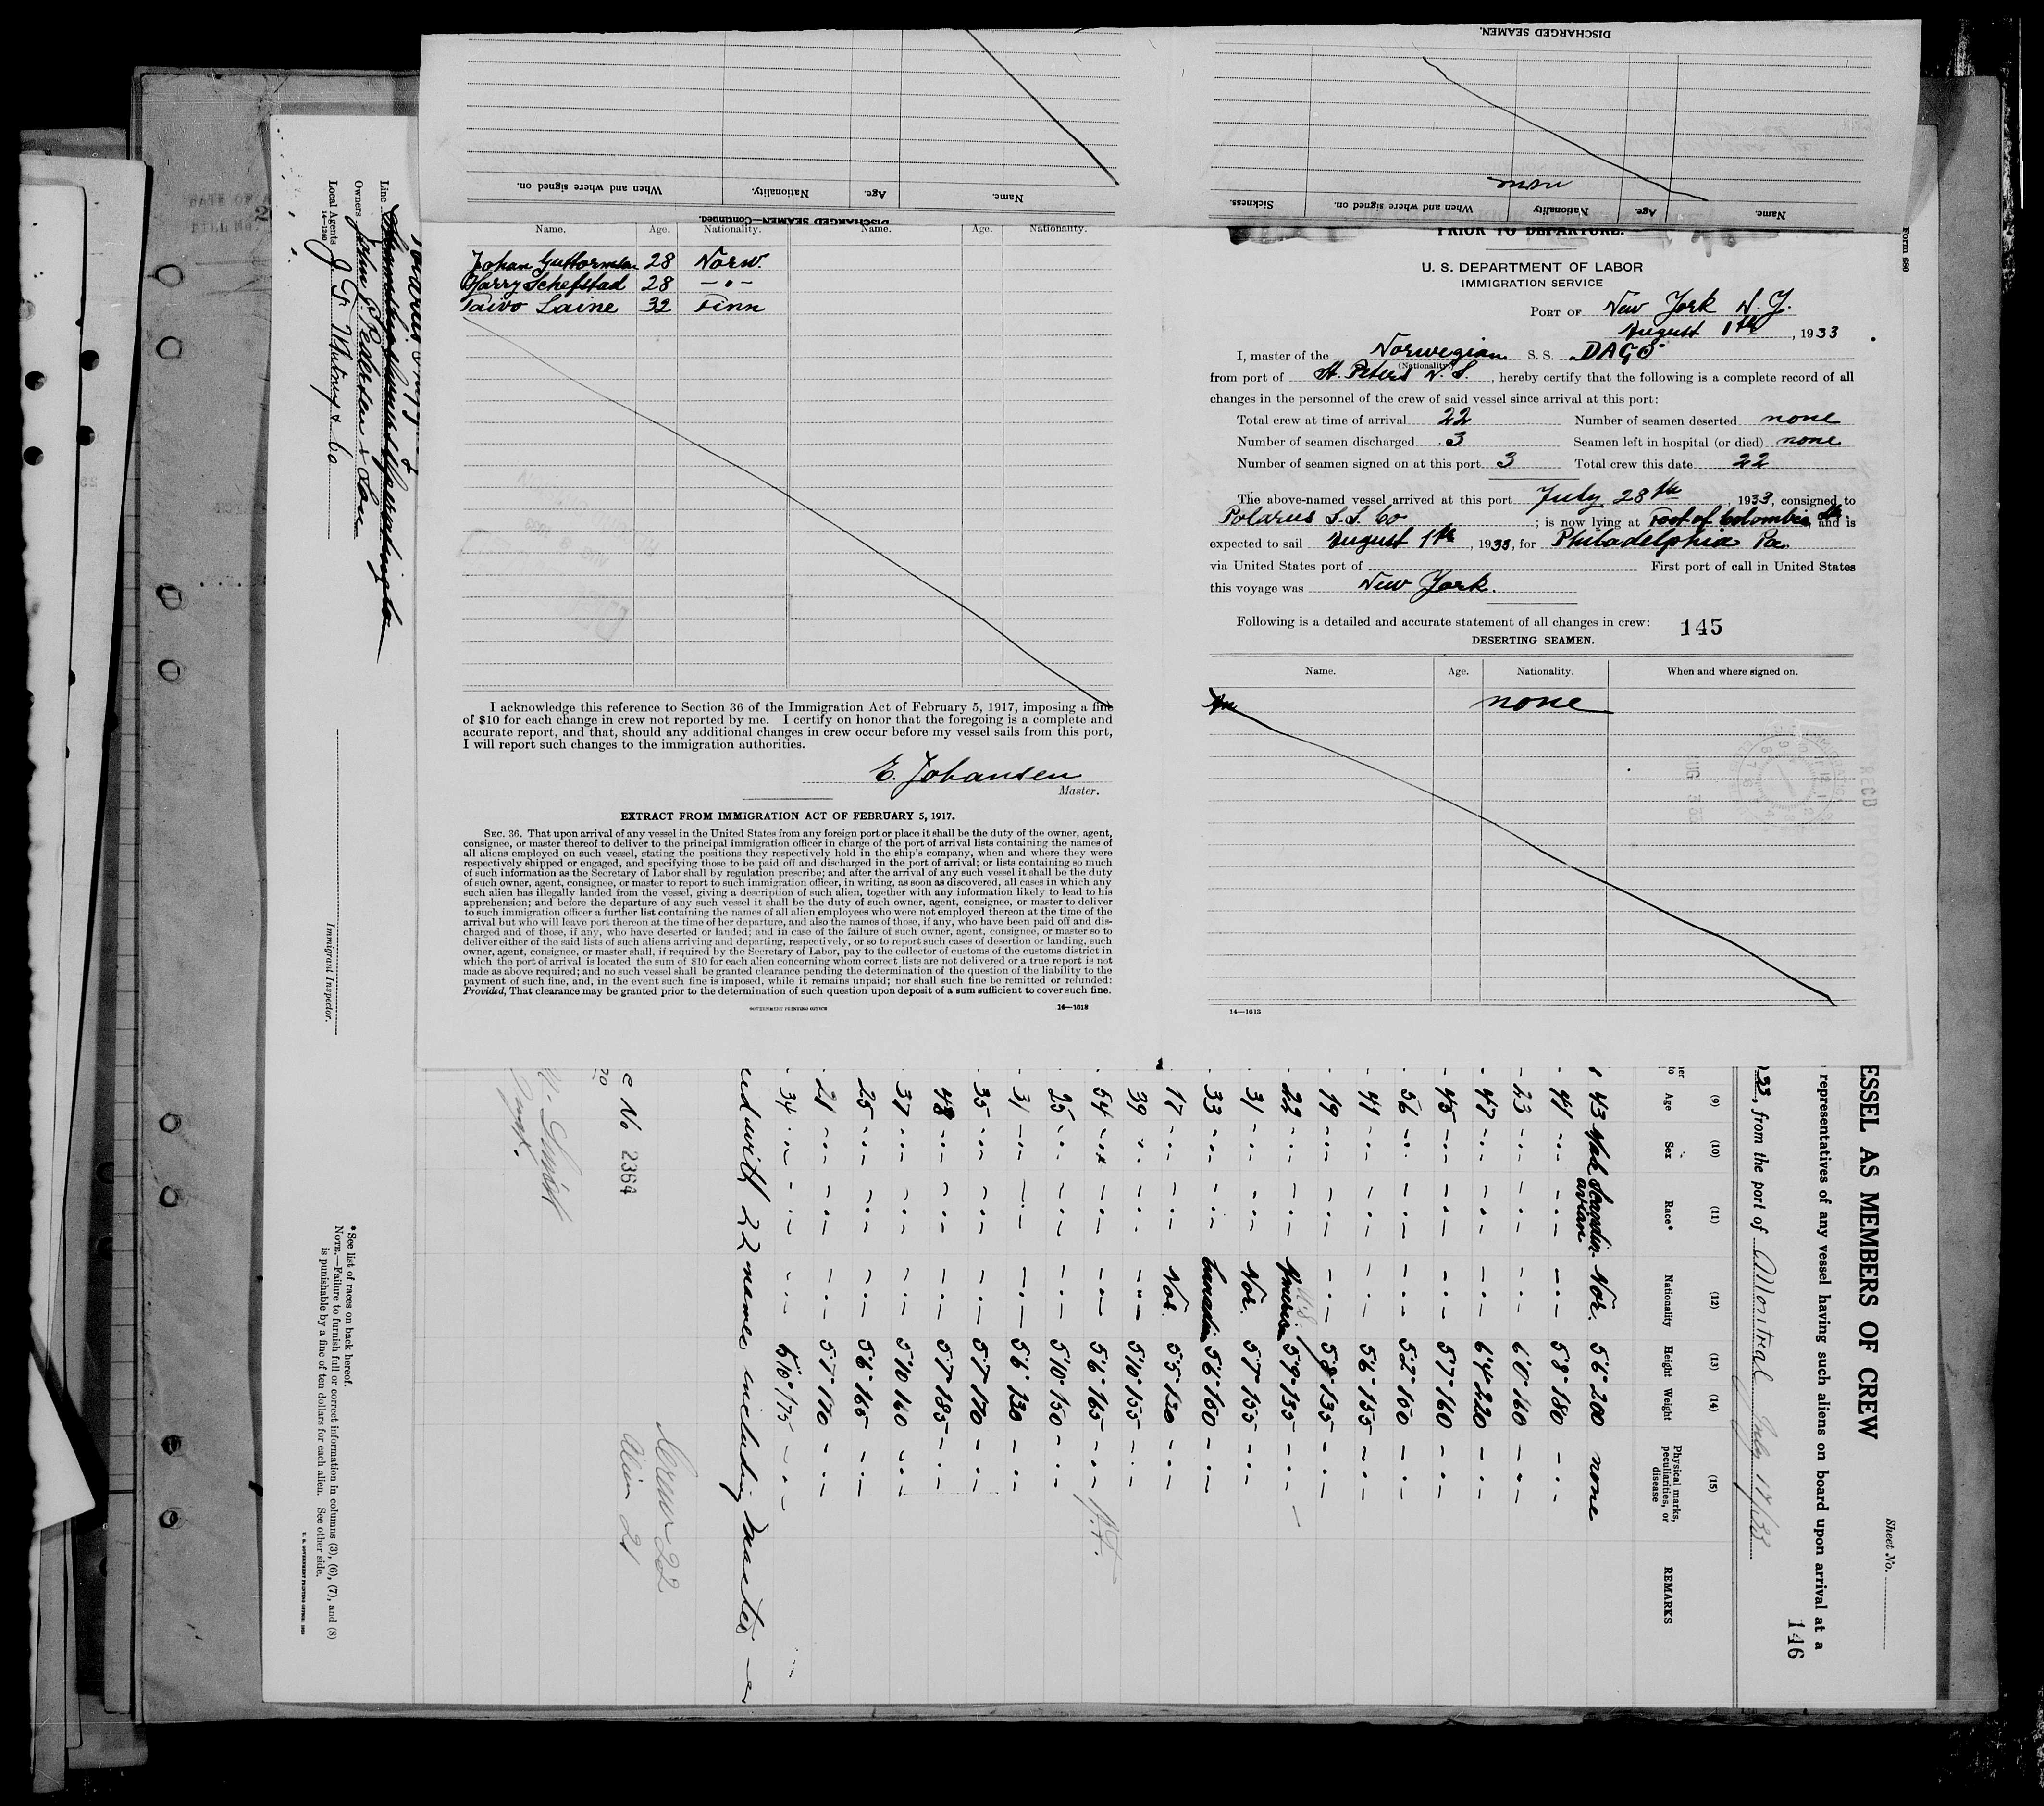 DISCHARGED SEAMEN.
Name.
Age.
Nationality.
When and where signed on.
DISCHARGED SEAMEN—Continued.
Name. Age. Nationality. Name. Age. Nationality.
Johan Guttormsen 28 Norw.
Harry Schefstad 28 — " —
Taivo Laine 32 Finn
I acknowledge this reference to Section 36 of the Immigration Act of February 5, 1917, imposing a fine
of $10 for each change in crew not reported by me. I certify on honor that the foregoing is a complete and
accurate report, and that, should any additional changes in crew occur before my vessel sails from this port,
I will report such changes to the immigration authorities.
E. Johansen
Master.
EXTRACT FROM IMMIGRATION ACT OF FEBRUARY 5, 1917.
SEC. 36. That upon arrival of any vessel in the United States from any foreign port or place it shall be the duty of the owner, agent,
consignee, or master thereof to deliver to the principal immigration officer in charge of the port of arrival lists containing the names of
all aliens employed on such vessel, stating the positions they respectively hold in the ship's company, when and where they were
respectively shipped or engaged, and specifying those to be paid off and discharged in the port of arrival; or lists containing so much
of such information as the Secretary of Labor shall by regulation prescribe; and after the arrival of any such vessel it shall be the duty
of such owner, agent, consignee, or master to report to such immigration officer, in writing, as soon as discovered, all cases in which any
such alien has illegally landed from the vessel, giving a description of such alien, together with any information likely to lead to his
apprehension; and before the departure of any such vessel it shall be the duty of such owner, agent, consignee, or master to deliver
to such immigration officer a further list containing the names of all alien employees who were not employed thereon at the time of the
arrival but who will leave port thereon at the time of her departure, and also the names of those, if any, who have been paid off and dis-
charged and of those, if any, who have deserted or landed; and in case of the failure of such owner, agent, consignee, or master so to
deliver either of the said lists of such aliens arriving and departing, respectively, or so to report such cases of desertion or landing, such
owner, agent, consignee, or master shall, if required by the Secretary of Labor, pay to the collector of customs of the customs district in
which the port of arrival is located the sum of $10 for each alien concerning whom correct lists are not delivered or a true report is not
made as above required; and no such vessel shall be granted clearance pending the determination of the question of the liability to the
payment of such fine, and, in the event such fine is imposed, while it remains unpaid; nor shall such fine be remitted or refunded:
Provided, That clearance may be granted prior to the determination of such question upon deposit of a sum sufficient to cover such fine.
GOVERNMENT PRINTING OFFICE 14—1613
DISCHARGED SEAMEN.
Name. Age. Nationality When and where signed on. Sickness.
none
Form 680
PRIOR TO DEPARTURE.
U. S. DEPARTMENT OF LABOR
IMMIGRATION SERVICE
PORT OF New York N. Y.
August 1th, 1933
I, master of the Norwegian S. S. DAGÖ
(Nationality)
from port of St. Peters N. S., hereby certify that the following is a complete record of all
changes in the personnel of the crew of said vessel since arrival at this port:
Total crew at time of arrival 22 Number of seamen deserted none
Number of seamen discharged 3 Seamen left in hospital (or died) none
Number of seamen signed on at this port 3 Total crew this date 22
The above-named vessel arrived at this port July 28th, 1933, consigned to
Polarus S.S. Co ; is now lying at Foot of Colombia St. and is
expected to sail August 1th, 1933, for Philadelphia Pa.
via United States port of First port of call in United States
this voyage was New York.
Following is a detailed and accurate statement of all changes in crew: 145
DESERTING SEAMEN.
Name. Age. Nationality. When and where signed on.
none
14—1613
ESSEL AS MEMBERS OF CREW
Sheet No.
representatives of any vessel having such aliens on board upon arrival at a
146
33, from the port of Montreal July 17/33
(9) (10) (11) (12) (13) (14) (15)
Age Sex Race* Nationality Height Weight Physical marks, peculiarities, or disease REMARKS
43 Male Scandinavian Nor. 5'6" 200 none
41 5'8" 180
23 6'0" 160
47 6'4" 220
45 5'7" 160
56 5'2" 160
41 5'6" 155
19 5'8" 135
22 American U.S. 5'9" 135
31 Nor. 5'7" 155
33 Canadian 5'6" 160
17 Nor. 5'5" 130
39 5'10" 155
54 5'6" 165
25 5'10" 150
31 5'6" 130
35 5'7" 170
48 5'7" 185
37 5'10 160
25 5'6" 165
21 5'7" 170
34 5'10" 175
ed with 22 names including master
c No 2364
Crew 22
Alien 21
Line
Owners John P. Pedersen & Son
Local Agents J F Whitney & Co
14—1240
Immigrant Inspector.
*See list of races on back hereof.
NOTE.—Failure to furnish full or correct information in columns (3), (6), (7), and (8)
is punishable by a fine of ten dollars for each alien. See other side.
U. S. GOVERNMENT PRINTING OFFICE